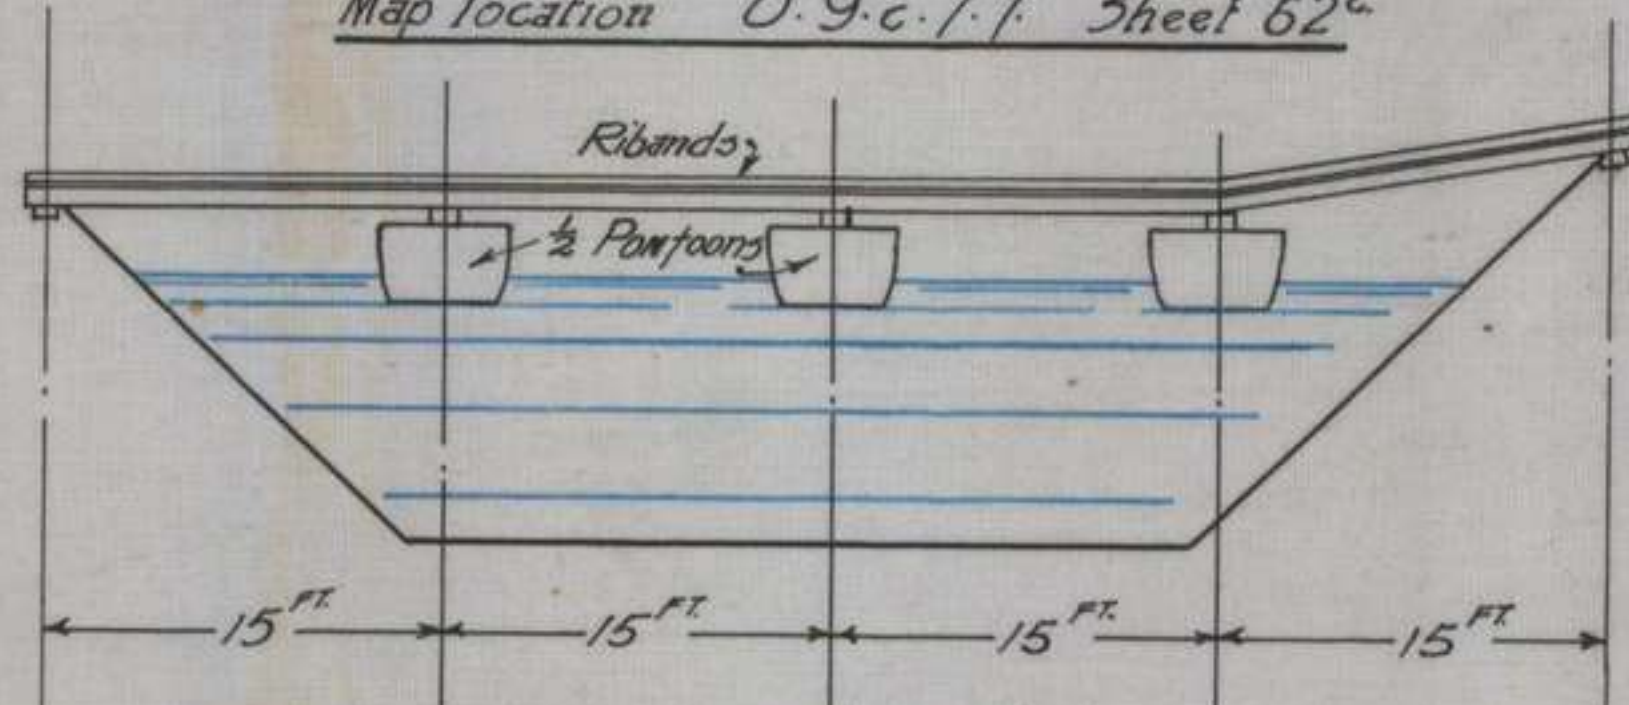 Map location O.9.c.1.1. Sheet 62c.
Ribands
½ Pontoons
15 FT. 15 FT. 15 FT. 15 FT.